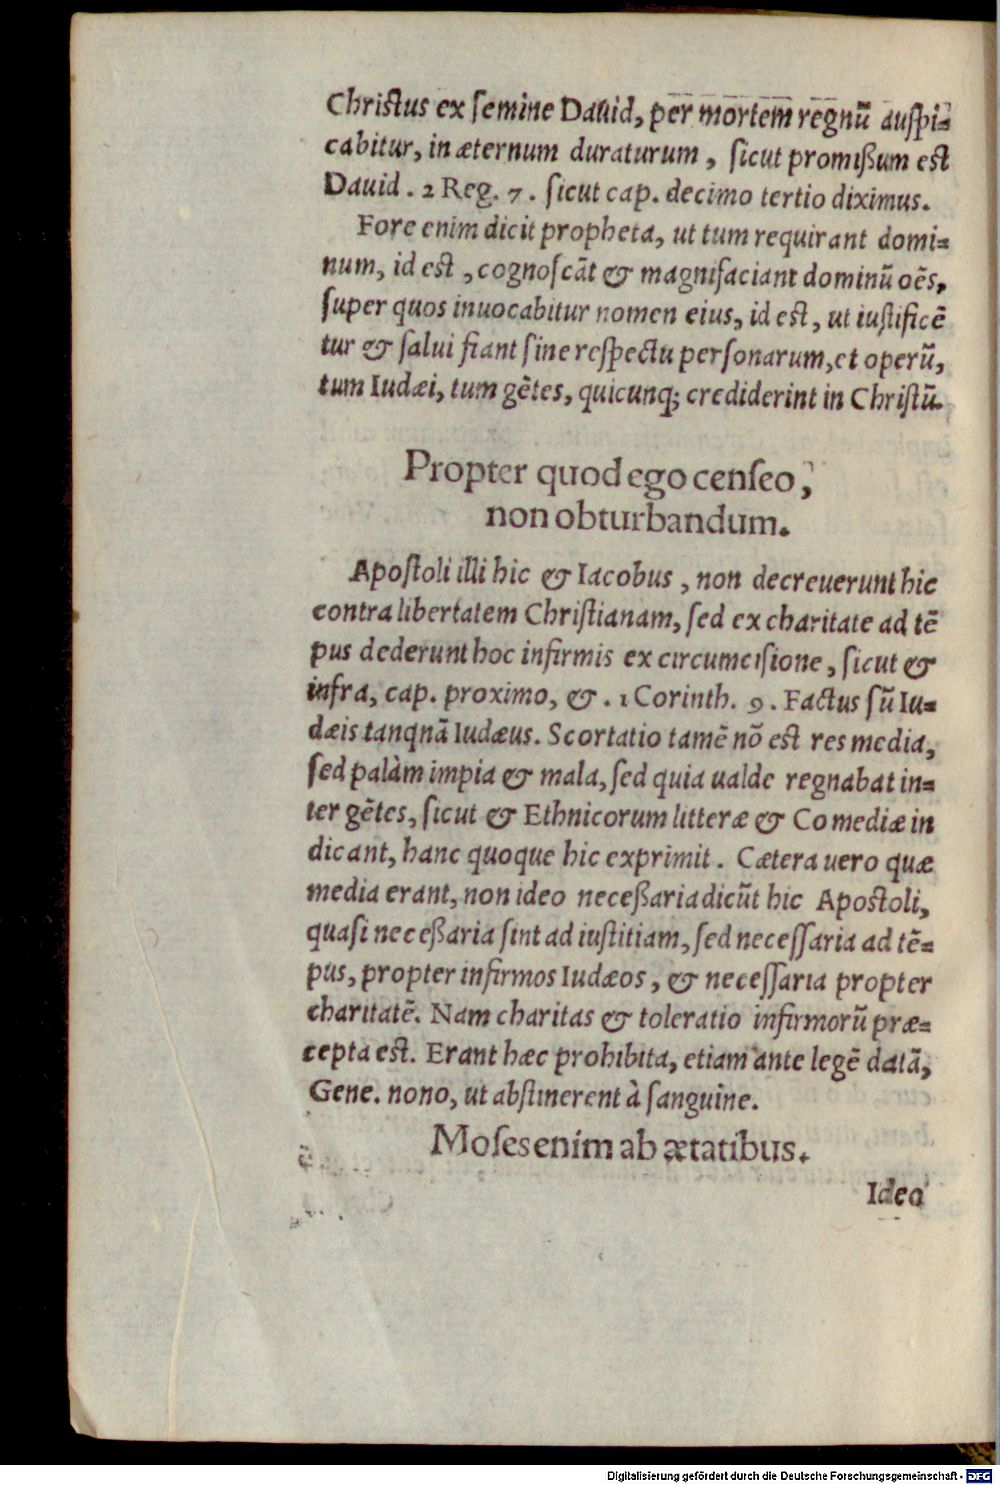 Christus ex ſemine Dauid, per mortem regnũ auſpi-
cabitur, in æternum duraturum, ſicut promißum est
Dauid. 2 Reg. 7. ſicut cap. decimo tertio diximus.
Fore enim dicit propheta, ut tum requirant domi-
num, id est, cognoſcãt & magnifaciant dominũ oẽs,
ſuper quos inuocabitur nomen eius, id est, ut iuſtificẽ
tur & ſalui fiant ſine reſpectu perſonarum, et operũ,
tum Iudæi, tum gẽtes, quicunq; crediderint in Chriſtũ.
Propter quod ego cenſeo,
non obturbandum.
Apoſtoli illi hic & Iacobus, non decreuerunt hic
contra libertatem Chriſtianam, ſed ex charitate ad tẽ
pus dederunt hoc infirmis ex circumciſione, ſicut &
infra, cap. proximo, &. 1 Corinth. 9. Factus ſũ Iu-
dæis tanqnã Iudæus. Scortatio tamẽ nõ est res media,
ſed palàm impia & mala, ſed quia ualde regnabat in-
ter gẽtes, ſicut & Ethnicorum litteræ & Comediæ in
dicant, hanc quoque hic exprimit. Cætera uero quæ
media erant, non ideo neceßaria dicũt hic Apostoli,
quaſi neceßaria ſint ad iuſtitiam, ſed neceſſaria ad tẽ-
pus, propter infirmos Iudæos, & neceſſaria propter
charitatẽ. Nam charitas & toleratio infirmorũ præ-
cepta est. Erant hæc prohibita, etiam ante legẽ datã,
Gene. nono, ut abſtinerent à ſanguine.
Moſes enim ab ætatibus.
Ideo
Digitalisierung gefördert durch die Deutsche Forschungsgemeinschaft - DFG